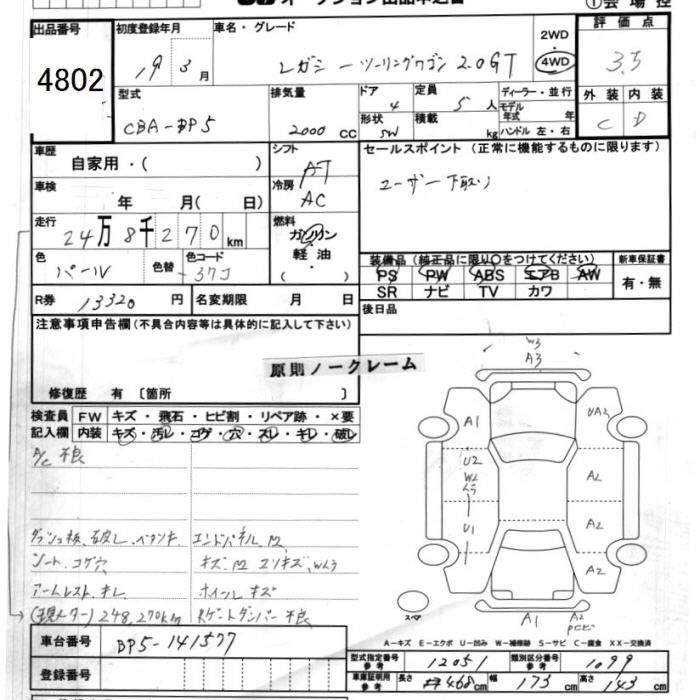 オークション出品申込書
①会場控
出品番号 4802
初度登録年月 19 3月
車名・グレード レガシーツーリングワゴン 2.0GT
2WD
4WD
評価点 3.5
型式 CBA-BP5
排気量 2000 CC
ドア 4
形状 SW
定員 5人
積載 kg
ディーラー・並行
モデル年式 年
ハンドル 左・右
外装 内装
C D
車歴 自家用・( )
シフト AT
セールスポイント(正常に機能するものに限ります)
ユーザー下取り
車検 年 月( 日)
冷房 AC
走行 24万8千270km
燃料 ガソリン
軽油・
( )
色 パール
色替
色コード 37J
装備品(純正品に限り○をつけてください)
新車保証書
PS PW ABS エアB AW
有・無
SR ナビ TV カワ
R券 13320円
名変期限 月 日
後日品
注意事項申告欄(不具合内容等は具体的に記入して下さい)
原則ノークレーム
修復歴 有〔箇所 〕
検査員記入欄
FW キズ・飛石・ヒビ割・リペア跡・×要
内装 キズ・汚レ・コゲ・穴・スレ・キレ・破レ
A/C 不良
ダッシュ板、破レ、ベタツキ、エンドパネル、M2
シート、コゲ穴
アームレスト、キレ ホイールキズ
(現メーター)248,270km Rゲートダンパー不良
W3
A3
A1
UA2
U2
W2
A2
U1
A2
A2
A1
A2
スペア
A-キズ E-エクボ U-凹み W-補修跡 S-サビ C-腐食 XX-交換済
車台番号 BP5-141577
登録番号
型式指定番号 参考 12051
類別区分番号 参考 1099
車庫証明用 参考 長さ 468cm 幅 173cm 高さ 143cm